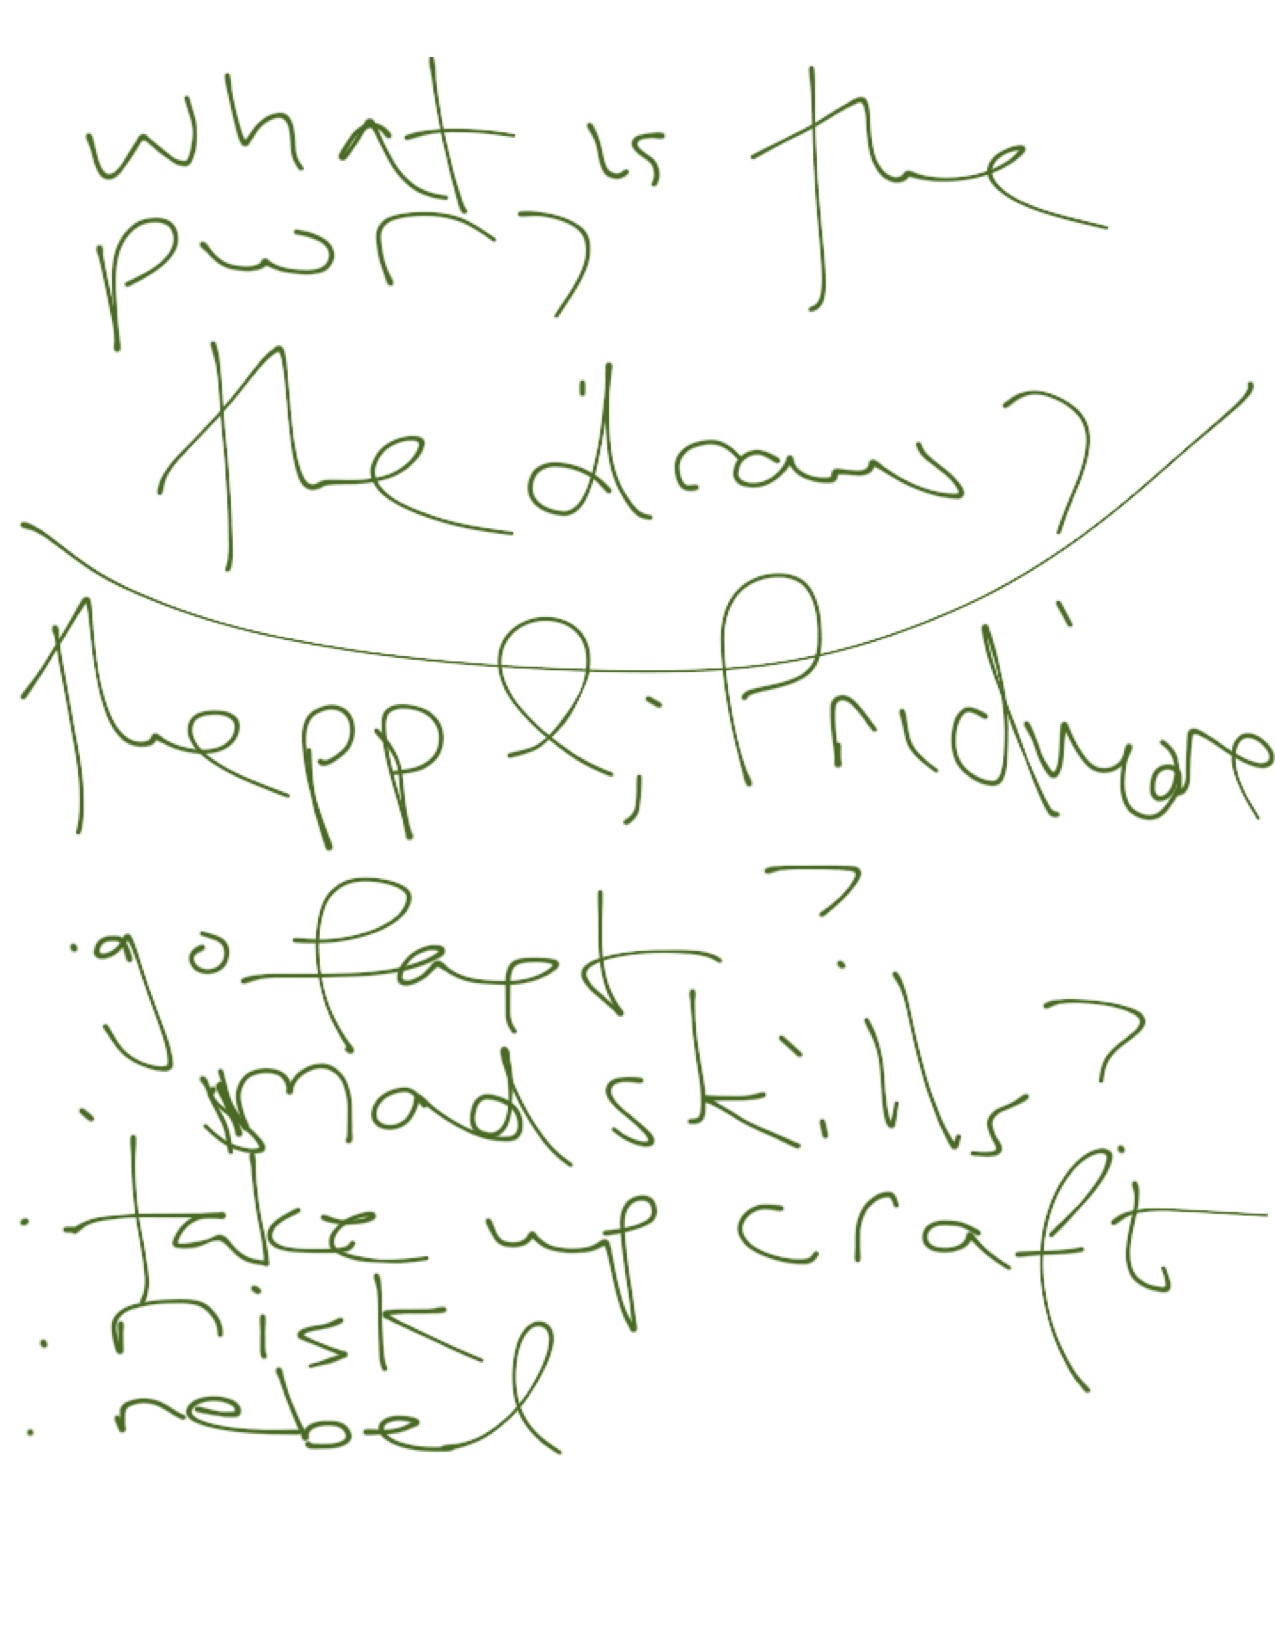 what is the
pwr?
the draw?
the ppl;
go fast?
mad skills?
take up craft
risk
rebel